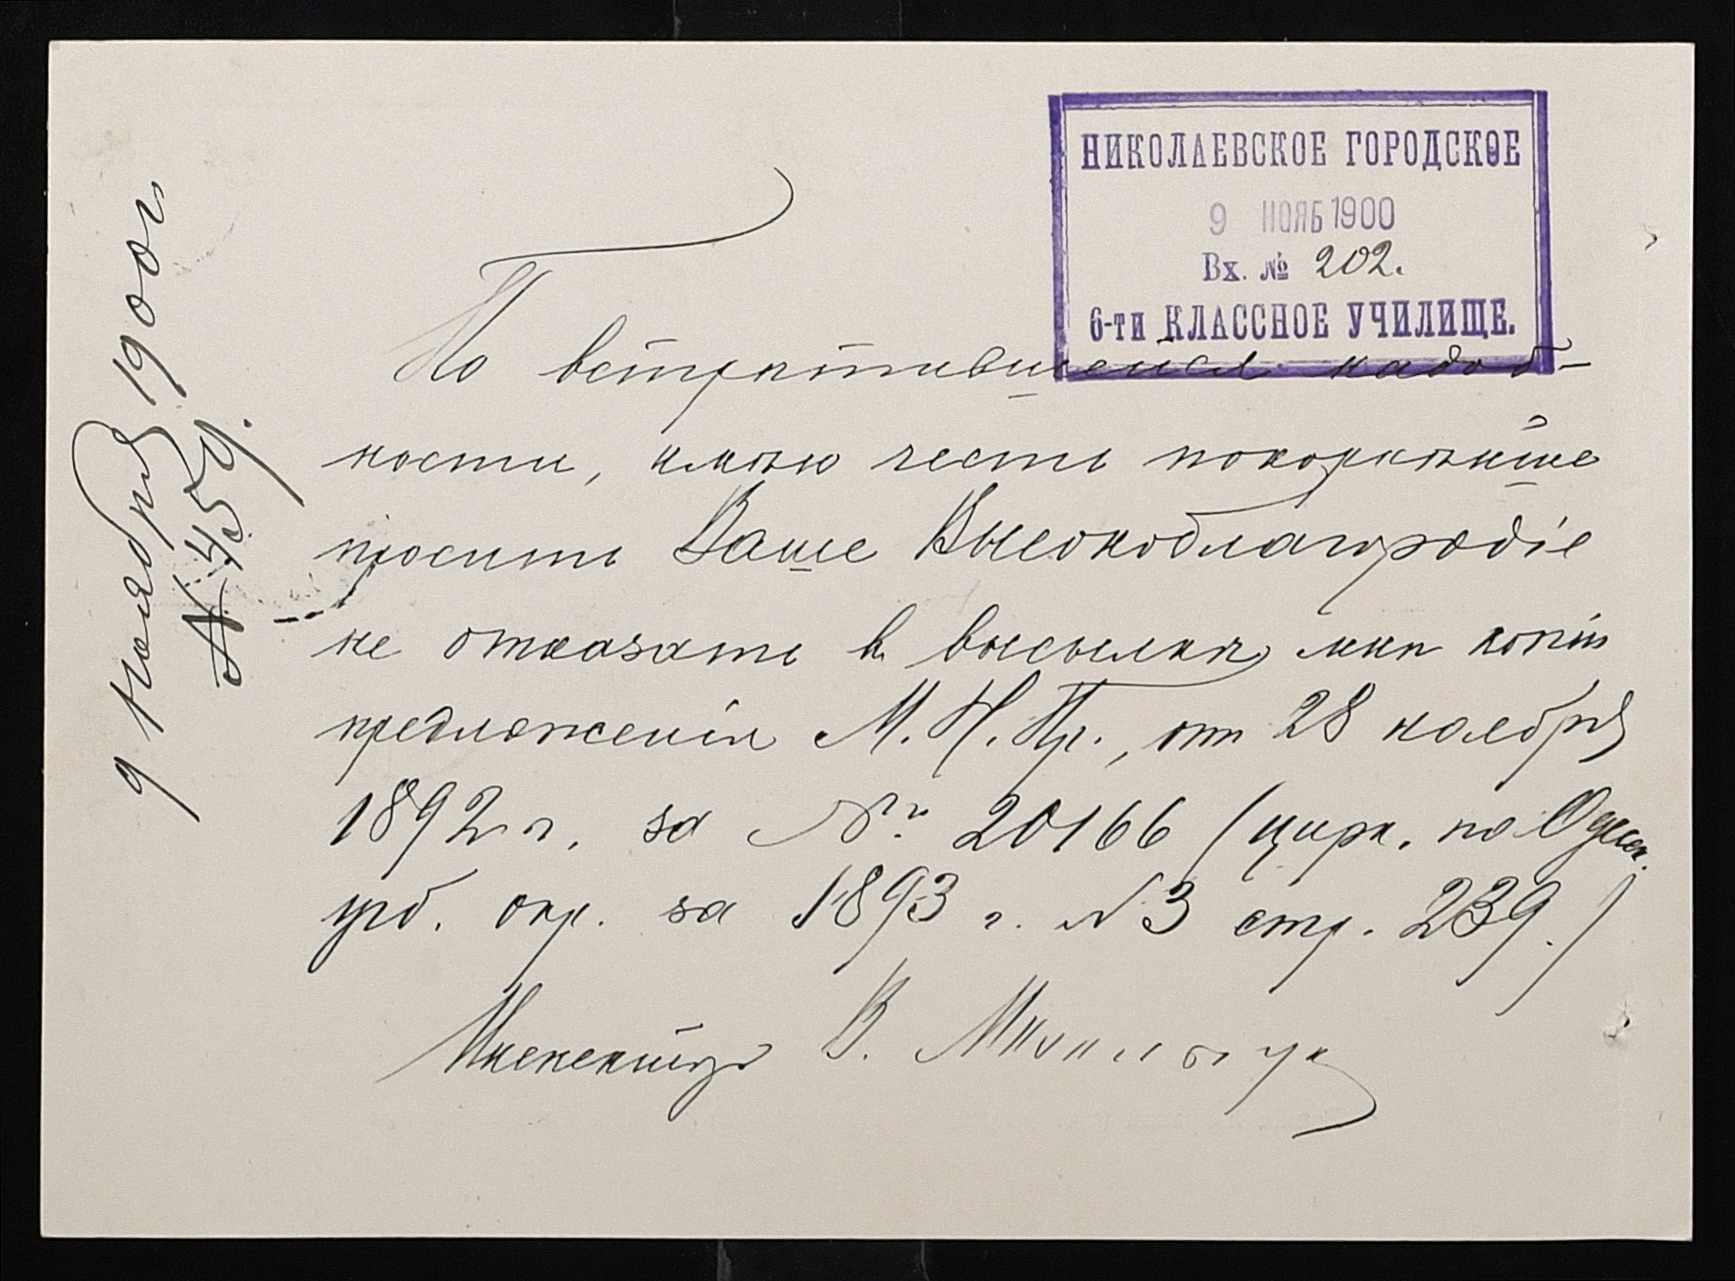 НИКОЛАЕВСКОЕ ГОРОДСКОЕ
9 НОЯБ 1900
Вх. № 202.
6-ти КЛАССНОЕ УЧИЛИЩЕ.
9 Ноября 1900 г.
№ 459.
По встрѣтившейся надоб-
ности, имѣю честь покорнѣйше
просить Ваше Высокоблагородіе
не отказать въ высылкѣ мнѣ копіи
предложенія М. Н. Пр., отъ 28 ноября
1892 г. за № 20166 (цирк. по Одесск.
учб. окр. за 1893 г. № 3 стр. 239.)
Инспекторъ В.